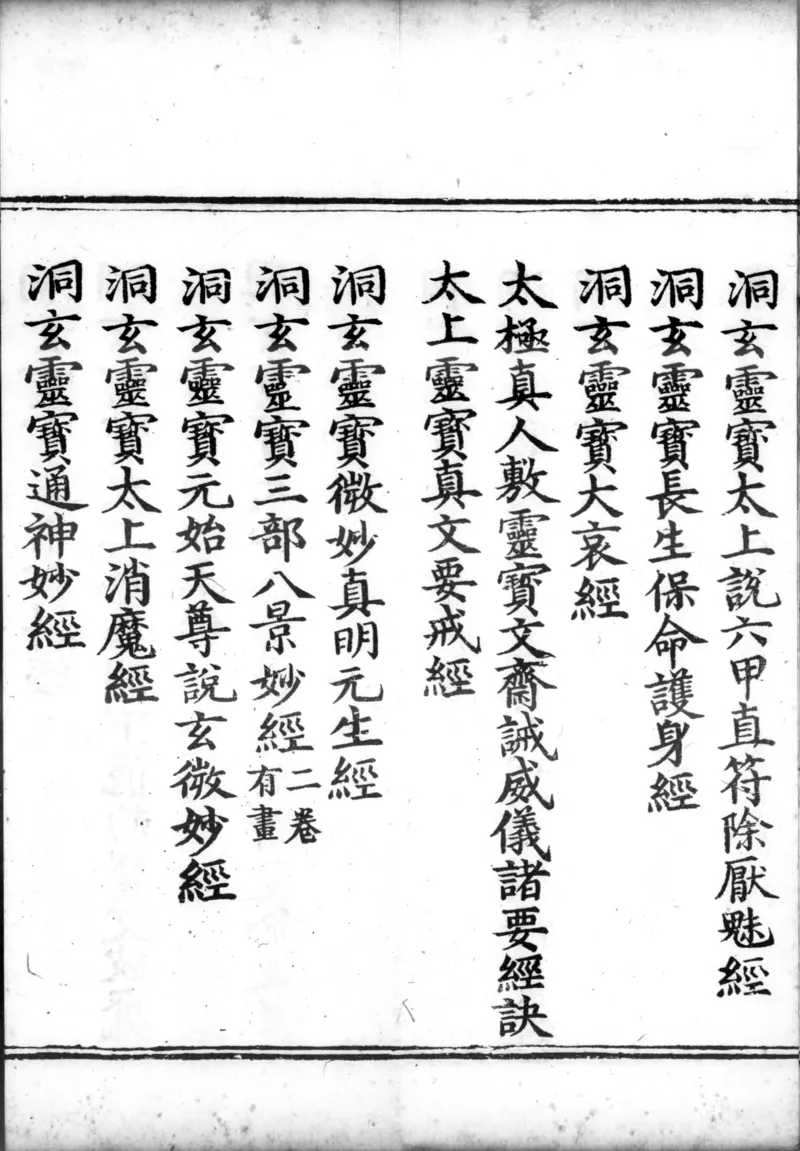 洞玄靈寳太上說六甲直符除厭魅經
洞玄靈寳長生保命護身經
洞玄靈寳大哀經
太極真人敷靈寳文齋誡威儀諸要經訣
太上靈寳真文要戒經
洞玄靈寳微妙真明元生經
洞玄靈寳三部八景妙經二卷有畫
洞玄靈寳元始天尊說玄微妙經
洞玄靈寳太上消魔經
洞玄靈寳通神妙經